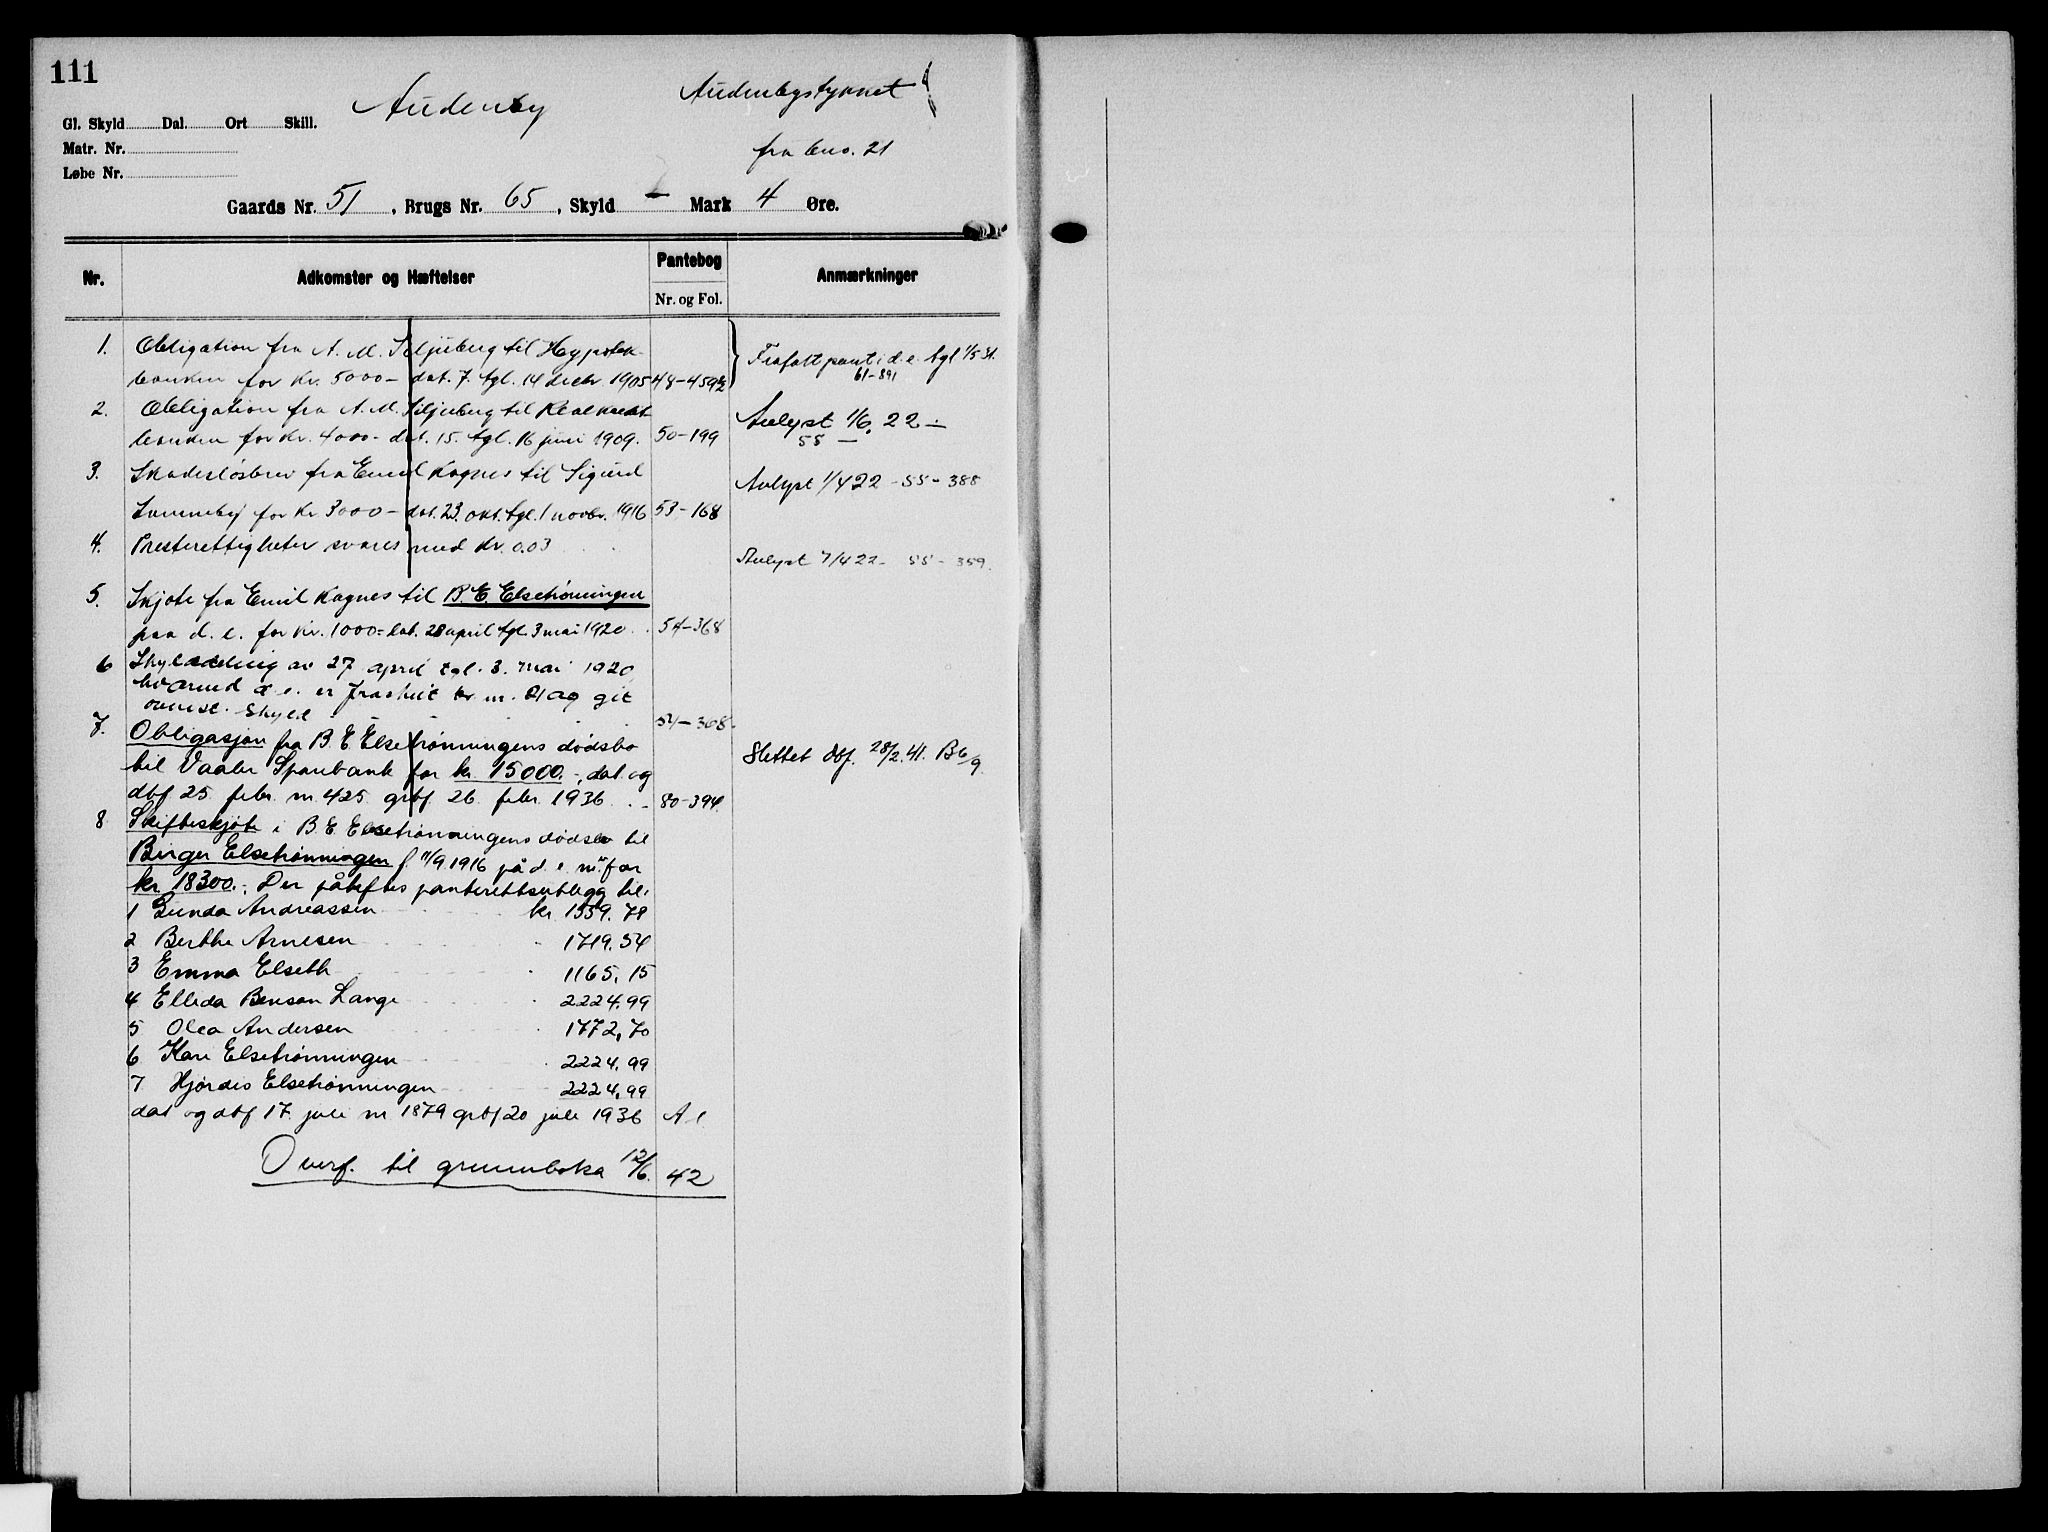 111
Audenby Audenbystykket
Gl. Skyld Dal. Ort Skill.
Matr. Nr. fra bno. 21
Løbe Nr.
Gaards Nr. 51, Brugs Nr. 65, Skyld - Mark 4 Øre.
Nr. Adkomster og Hæftelser Pantebog Anmærkninger
Nr. og Fol.
1. Obligation fra A. M. Siljuberg til Hypotek-
banken for Kr. 5000 - dat. 7. tgl. 14 decbr. 1905 48-459½ Frafalt pant i d. e. tgl 1/5 31.
61-891
2. Obligation fra A. M. Siljuberg til Realkredit-
banken for Kr. 4000 - dat. 15. tgl. 16 juni 1909. 50-199 Avlyst 1/6. 22 -
55 -
3. Skadesløsbrev fra Emil Kagnes til Sigurd
for Kr. 3000 - dat. 23. okt. tgl. 1 novbr. 1916 53-168 Avlyst 1/4 22 - 55 - 388
4. Presterettigheter svares med Kr. 0.03 Avlyst 7/4 22 - 55 - 359.
5. Skjøte fra Emil Kagnes til B. E. Elsetrønningen
paa d. e. for Kr. 1000 - dat. 28 april tgl. 3 mai 1920. 54-368
6 Skylddeling av 27 april tgl. 3. mai 1920
hvorved d. e. er fraskilt br. nr. 21 og git
ovenst. skyld 54-368.
7. Obligasjon fra B. E. Elsetrønningens dødsbo
til Vaaler Sparebank for kr. 15000.-, dat. og
dbf 25. febr. nr. 425. grbf. 26. febr. 1936. - 80-394. Slettet dbf. 28/2.41. B6/9.
8 Skifteskjøte i B. E. Elsetrønningens dødsbo til
Birger Elsetrønningen f. 11/9 1916 på d. e. m. fl. for
kr 18300.-. Der påheftes panterettsutlegg til:
1 Gunda Andreassen kr. 1559.78
2 Berthe Arnesen 1719.54
3 Emma Elseth 1165.15
4 Elleda Benson Lange 2224.99
5 Olea Andersen 1772.70
6 Kari Elsetrønningen 2224.99
7 Hjørdis Elsetrønningen 2224.99
dat og dbf 17. juli nr 1879 grbf 20 juli 1936 A 1
Overf. til grunnboka 12/6. 42